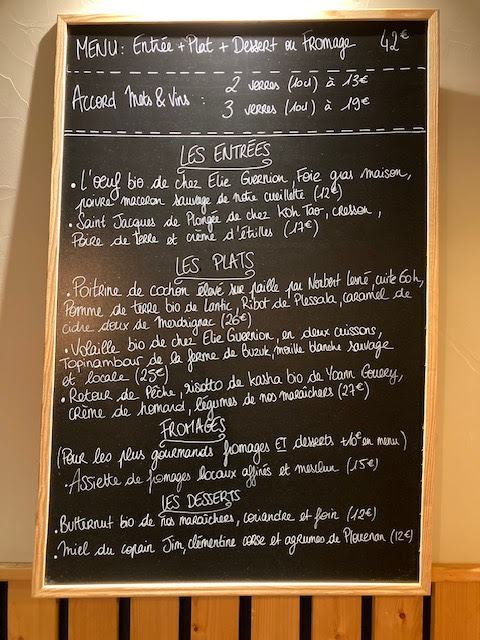 MENU: Entrée + Plat + Dessert ou Fromage 42€
Accord Mets & Vins : 2 verres (10cl) à 13€
3 verres (10cl) à 19€
LES ENTRÉES
• L'oeuf bio de chez Elie Guernion, Foie gras maison,
poivre maceron sauvage de notre cueillette (12€)
• Saint Jacques de Plongée de chez Koh Tao, cresson,
Poire de terre et crème d'étrilles (17€)
LES PLATS
• Poitrine de cochon élevé sur paille par Norbert Lesné, cuite 60h,
Pomme de terre bio de Lantic, Ribot de Plessala, caramel de
cidre doux de Merdrignac (26€)
• Volaille bio de chez Elie Guernion, en deux cuissons,
Topinambour de la ferme de Buzuk, morille blanche sauvage
et locale (25€)
• Retour de Pêche, risotto de kasha bio de Yoann Gouery,
crème de homard, légumes de nos maraîchers (27€)
FROMAGES
(Pour les plus gourmands fromages ET desserts +10€ en menu)
• Assiette de fromages locaux affinés et mesclun (15€)
LES DESSERTS
• Butternut bio de nos maraîchers, coriandre et foin (12€)
• Miel du copain Jim, clémentine corse et agrumes de Plouenan (12€)